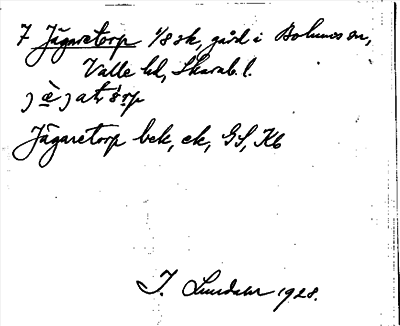 7 Jägaretorp 1/8 sk, gård i Bolums sn,
Valle hd, Skarab. l.
Jägaretorp bek, ek, GS, Kb
I. Lundahl 1928.